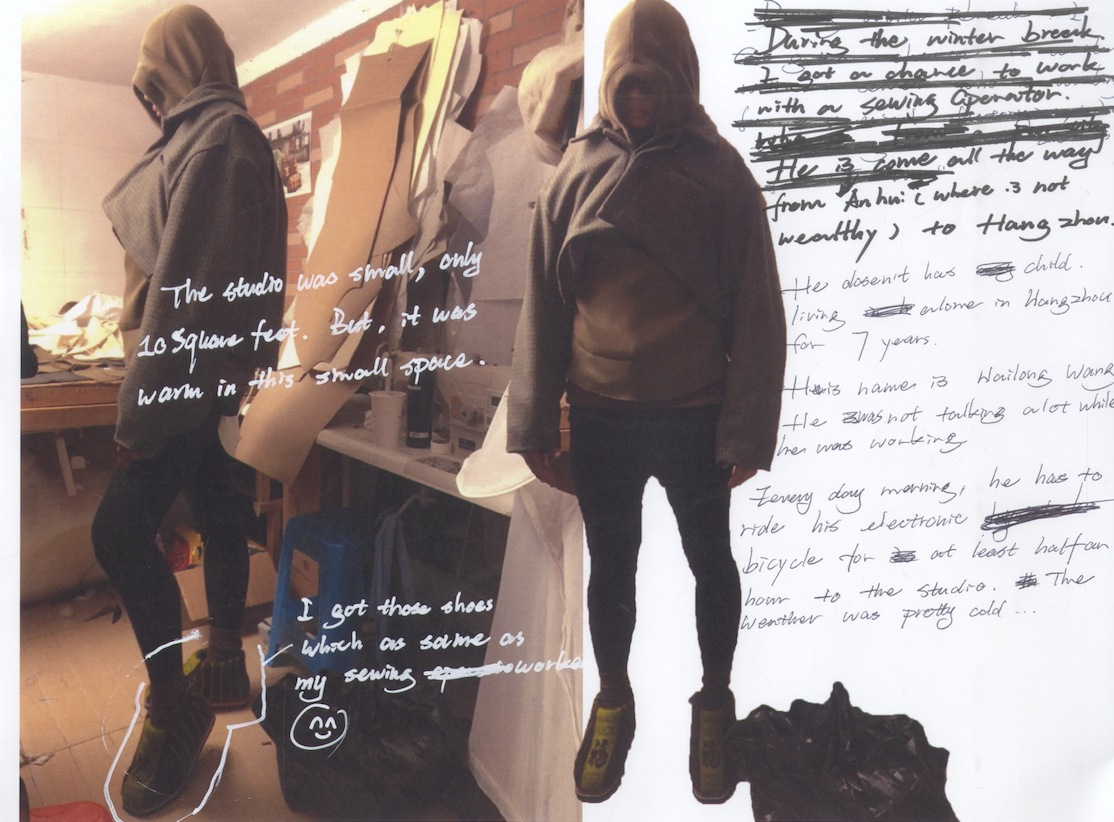 The studio was small, only
10 Square feet. But, it was
warm in this small space.
I got those shoes
which as same as
my sewing worke
福
During the winter break
I got a chance to work
with a sewing Operator.
He is come all the way
from Anhui (where is not
wealthy) to Hangzhou.
He dosen't has child.
living alome in Hangzhou
for 7 years.
His name is Hailong Wang
He was not talking alot while
he was working
Every day morning, he has to
ride his electronic
bicycle for at least half an
hour to the studio. The
weather was pretty cold ...